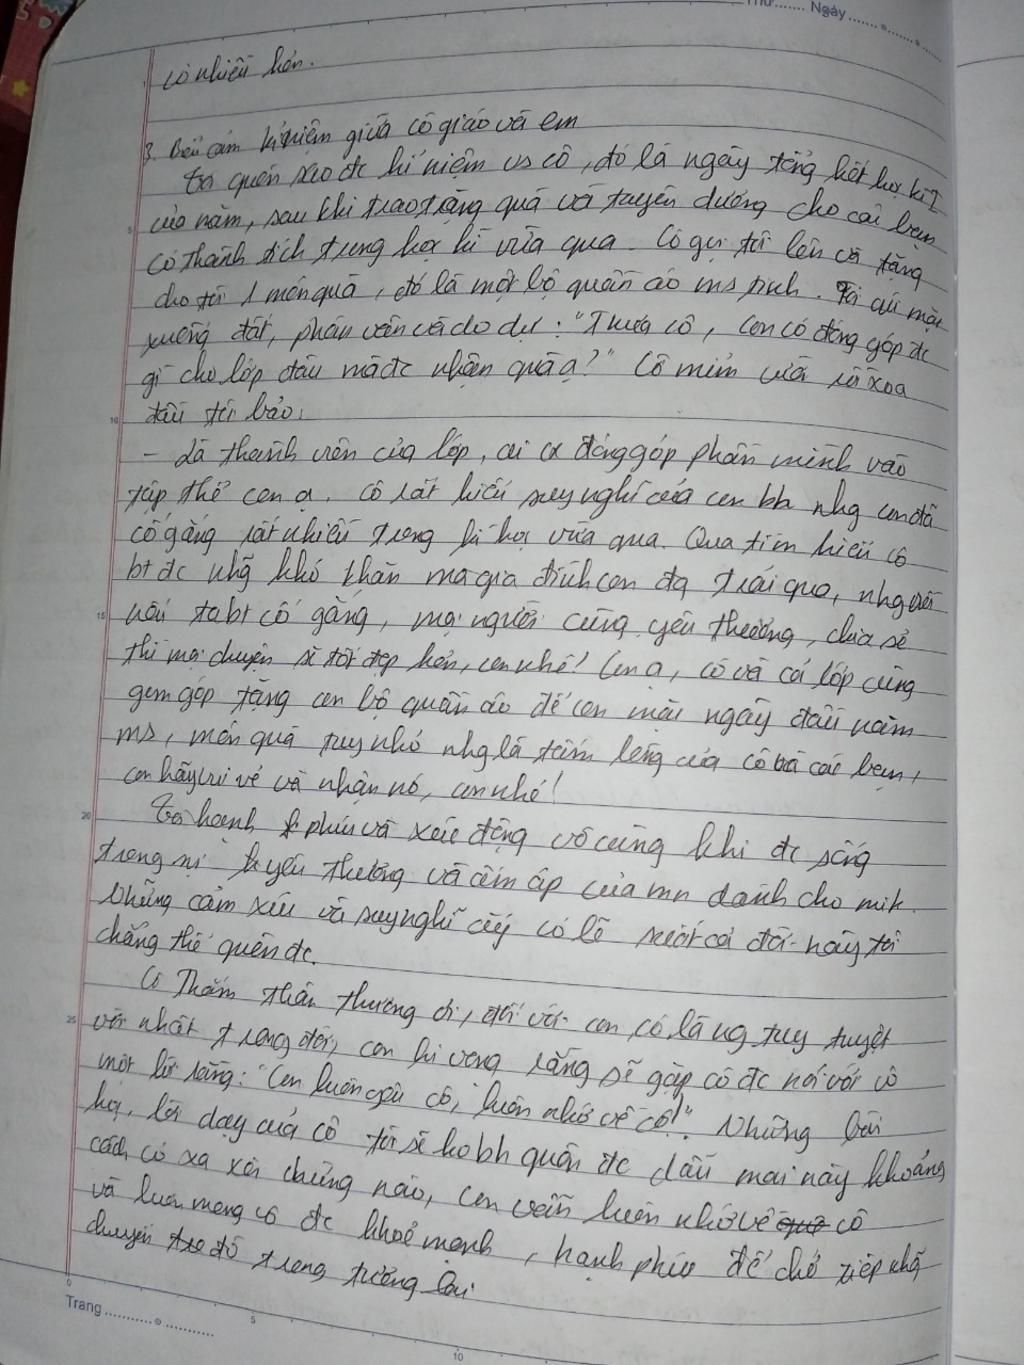 Thứ....... Ngày.......
cô nhiều hơn.
3. Biểu cảm kỉ niệm giữa cô giáo và em
Tôi quên sao đc kỉ niệm vs cô, đó là ngày tổng kết học kì I
của năm, sau khi trao tặng quà và tuyên dương cho các bạn
có thành tích trong học kì vừa qua. Cô gọi tôi lên và tặng
cho tôi 1 món quà, đó là một bộ quần áo ms tinh. Tôi cúi mặt
xuống đất, phân vân và do dự: "Thưa cô, con có đóng góp đc
gì cho lớp đâu mà đc nhận quà ạ?" Cô mỉm cười rồi xoa
đầu tôi bảo:
- Là thành viên của lớp, ai cx đóng góp phần mình vào
tập thể con ạ. Cô rất hiểu suy nghĩ của con bh nhg con đã
cố gắng rất nhiều trong kì học vừa qua. Qua tìm hiểu cô
bt đc nhg khó khăn mà gia đình con đã trải qua, nhg
nếu ta bt cố gắng, mọi người cùng yêu thương, chia sẻ
thì mọi chuyện sẽ tốt đẹp hơn, con nhé! Con ạ, cô và cả lớp cùng
gom góp tặng con bộ quần áo để con mặc ngày đầu năm
ms, món quà tuy nhỏ nhg là tấm lòng của cô và các bạn,
con hãy vui vẻ và nhận nó, con nhé!
Tôi hạnh phúc và xúc động vô cùng khi đc sống
trong sự yêu thương và ấm áp của mn dành cho mik.
Những cảm xúc và suy nghĩ ấy có lẽ suốt cả đời này tôi
chẳng thể quên đc.
Cô Thắm thân thương ơi, đối với con cô là ng tuy tuyệt
vời nhất trong đời, con hi vọng rằng sẽ gặp cô đc nói với cô
một lời rằng: "Con luôn yêu cô, luôn nhớ về cô!". Những bài
học, lời dạy của cô tôi sẽ ko bh quên đc dẫu mai này khoảng
cách có xa xôi chừng nào, con vẫn luôn nhớ về cô
và luôn mong cô đc khoẻ mạnh, hạnh phúc để chở tiếp nhg
chuyến đò trong tương lai
Trang.......